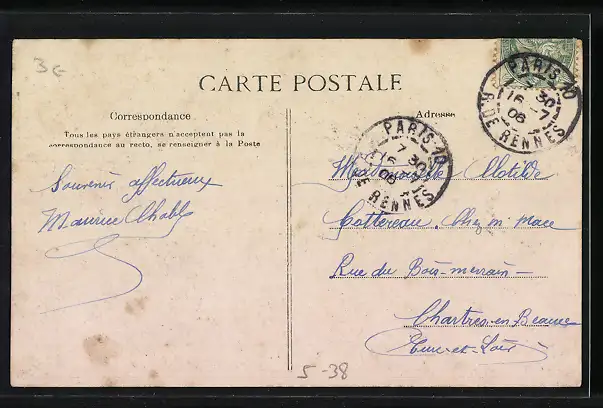 3€
CARTE POSTALE
Correspondance
Tous les pays étrangers n'acceptent pas la
correspondance au recto, se renseigner à la Poste
Adresse
PARIS-10
16 30
7
06
R. DE RENNES
PARIS-10
7 30
16
06
DE RENNES
Souvenir affectueux
Maurice Chable
Mademoiselle Clotilde
Cottereau, Chez Mr Macé
Rue du Bois-merrain —
Chartres-en-Beauce
Eure-et-Loir
5-38